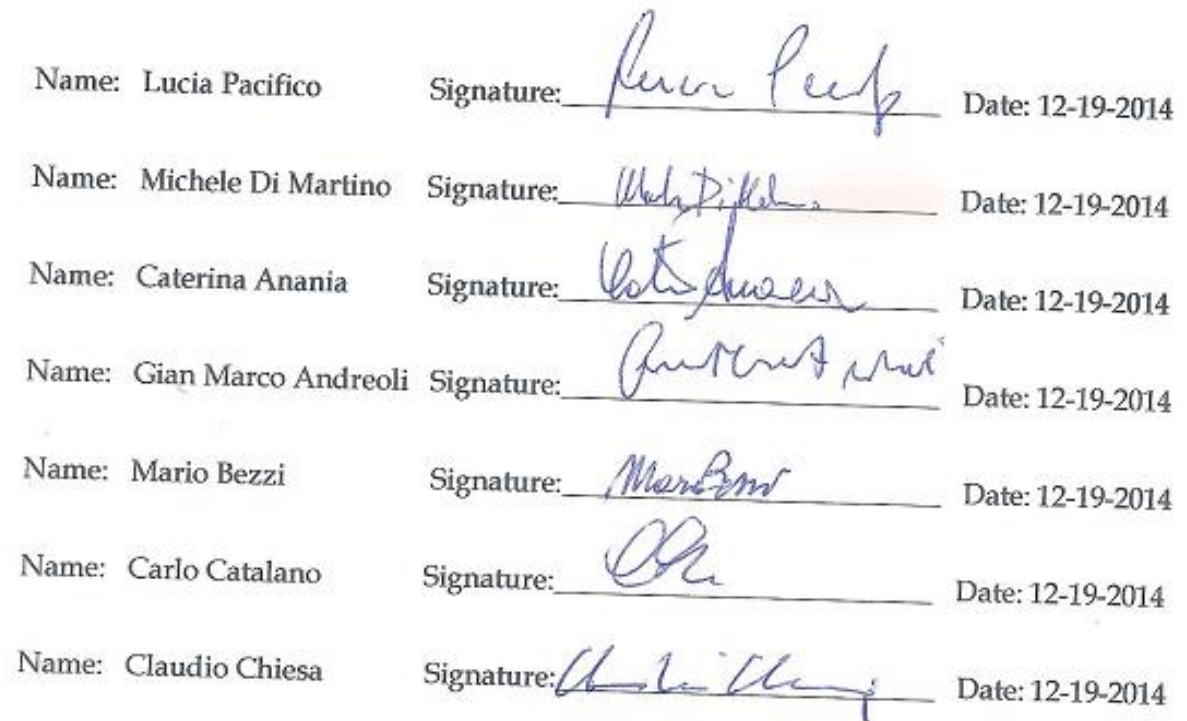 Name: Lucia Pacifico Signature: Date: 12-19-2014
Name: Michele Di Martino Signature: Date: 12-19-2014
Name: Caterina Anania Signature: Date: 12-19-2014
Name: Gian Marco Andreoli Signature: Date: 12-19-2014
Name: Mario Bezzi Signature: Date: 12-19-2014
Name: Carlo Catalano Signature: Date: 12-19-2014
Name: Claudio Chiesa Signature: Date: 12-19-2014